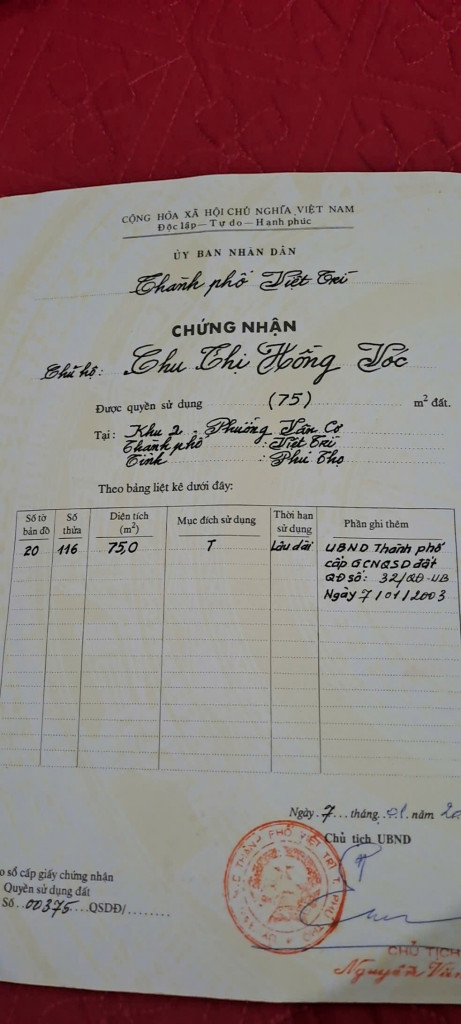 CỘNG HÒA XÃ HỘI CHỦ NGHĨA VIỆT NAM
Độc lập — Tự do — Hạnh phúc
ỦY BAN NHÂN DÂN
Thành phố Việt Trì
CHỨNG NHẬN
Chủ hộ: Chu Thị Hồng Vóc
Được quyền sử dụng (75) m² đất.
Tại: Khu 2 - Phường Vân Cơ
Thành phố : Việt Trì
Tỉnh : Phú Thọ
Theo bảng liệt kê dưới đây:
Số tờ bản đồ Số thửa Diện tích (m²) Mục đích sử dụng Thời hạn sử dụng Phần ghi thêm
20 116 75,0 T Lâu dài UBND Thành phố
cấp GCNQSD đất
QĐ số: 32/QĐ-UB
Ngày 7/01/2003
Ngày 7 tháng 01 năm
Chủ tịch UBND
số cấp giấy chứng nhận
Quyền sử dụng đất
Số 00375 QSDĐ/
CHỦ TỊCH
Nguyễn